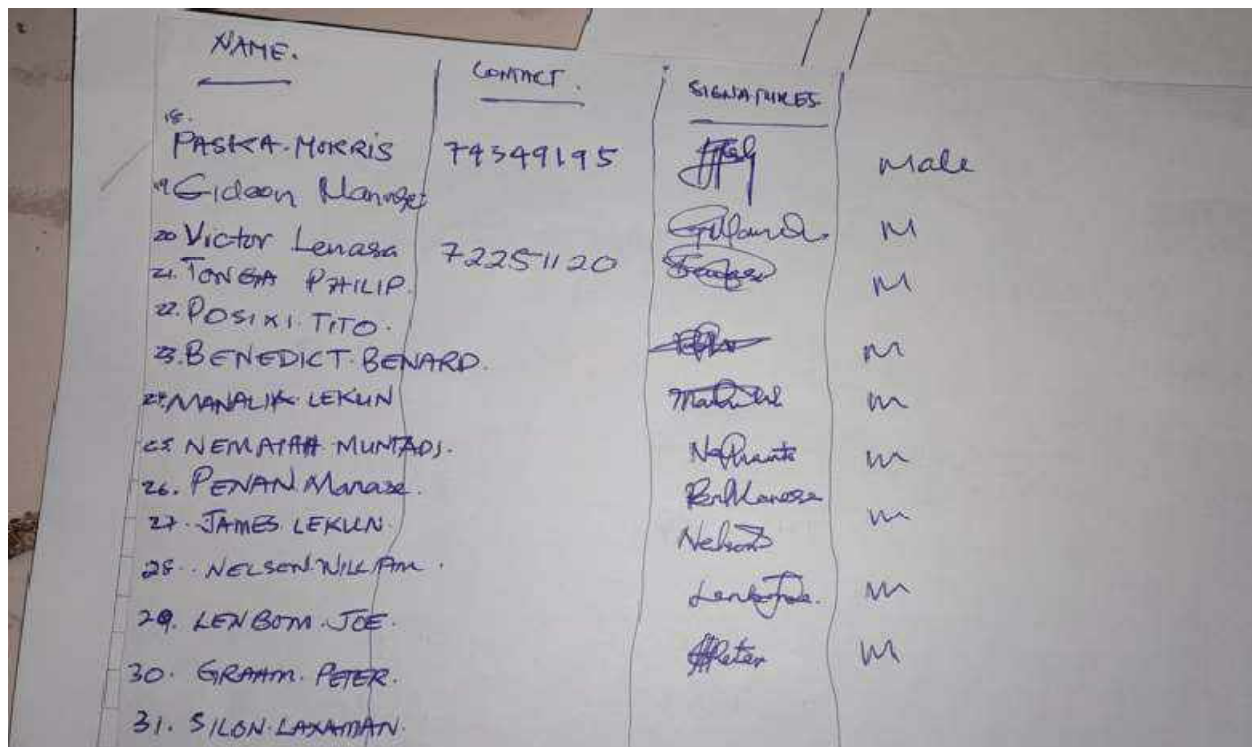 NAME. CONTACT. SIGNATURES
18. PASKA. MORRIS 74349195 Male
19 Gideon Manase
20 Victor Lenasa 72251120 M
21. TONGA PHILIP. M
22. POSIXI. TITO.
23. BENEDICT. BENARD. M
24. MANALIK LEKUN M
25 NEMAYAH MUNTADI. M
26. PENAN Manase.
27. JAMES LEKUN. Nelson M
28. NELSON WILLIAM.
29. LENBOM. JOE. M
30. GRAHM. PETER. Peter M
31. SILON. LAXAMAN.